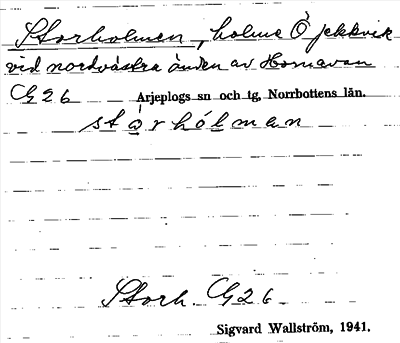 Storholmen, holme Ö jekkvik
vid nordvästra änden av Hornavan
G 26 Arjeplogs sn och tg, Norrbottens län.
stårhólman
Storh. G 26
Sigvard Wallström, 1941.